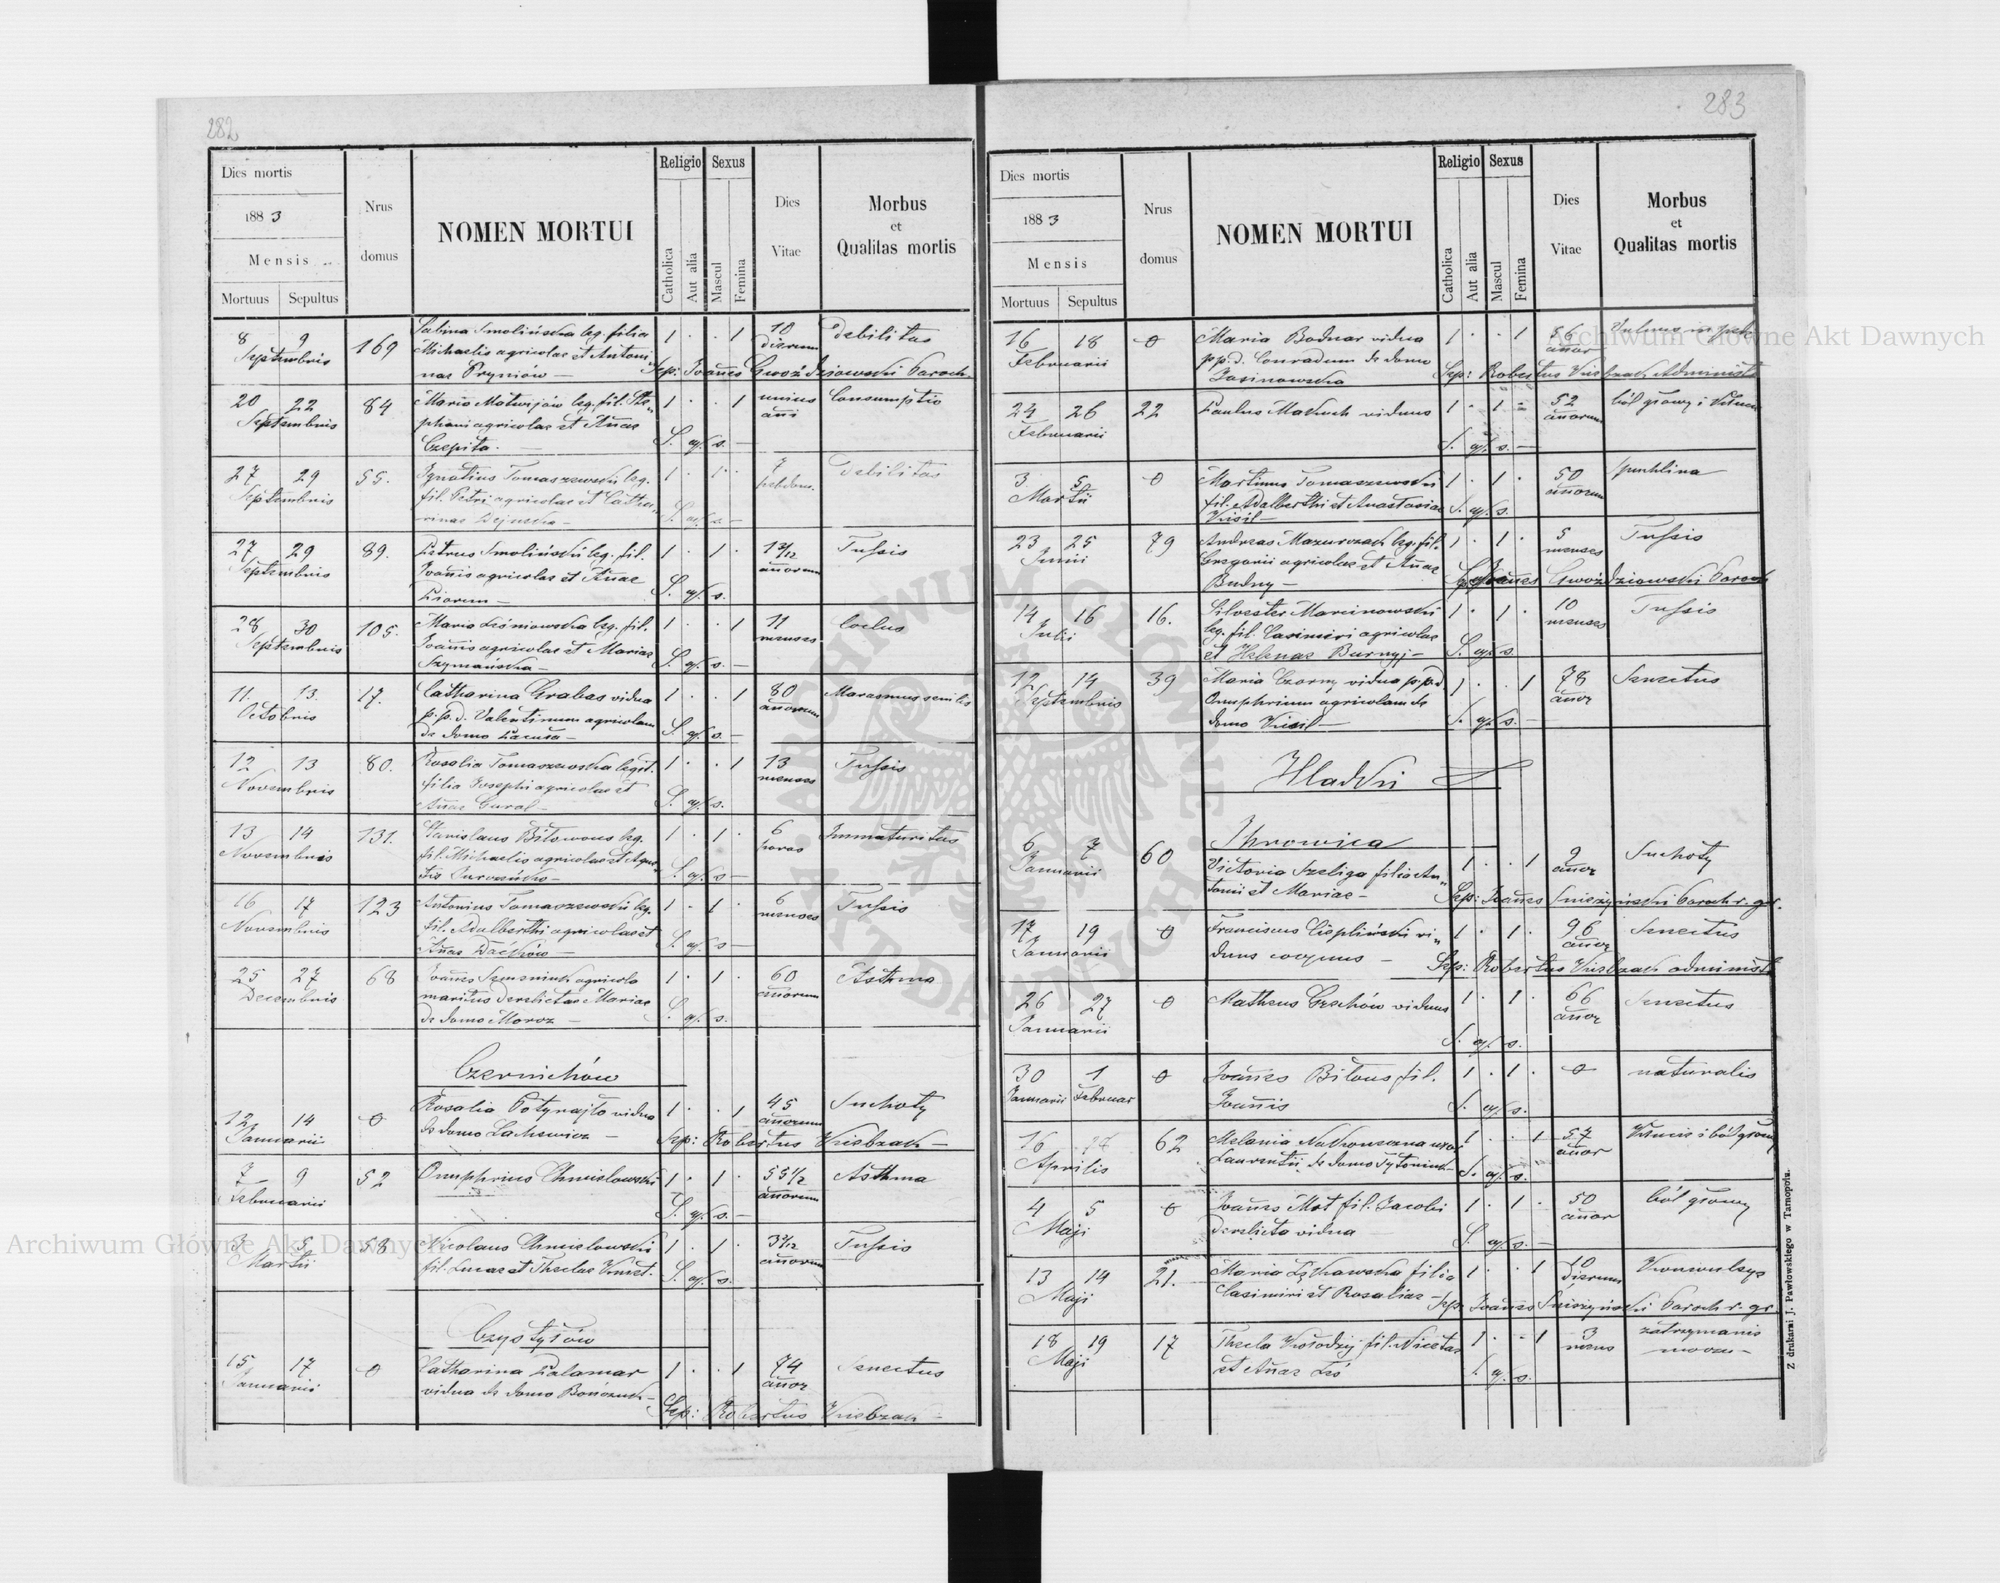 282
Dies mortis
1883
Mensis
Mortuus Sepultus
Nrus domus
NOMEN MORTUI
Religio
Catholica
Aut alia
Sexus
Mascul
Femina
Dies Vitae
Morbus
et
Qualitas mortis
8 9 169 Sabina Smolińska leg. filia 1 . . 1 10 Debilitas
Septembris Michaelis agricolae et Antoni dierum
nae Pryniów — Sep: Joañes Gwoździowski Paroch.
20 22 84 Maria Matwijów leg. fil. Ste„ 1 . . 1 unius Consumptio
Septembris phani agricolae et Añae ani
Czepita. S. q. s. —
27 29 55. Ignatius Tomaszewski leg. 1 . 1 . 7 Debilitas
Septembris fil. Petri agricolae et Catha„ hebdom.
rinae S. q. s. —
27 29 89. Petrus Smoliński leg. fil. 1 . 1 . 1 3/12 Tussis
Septembris Joañis agricolae et Añae añorum
S. q. s.
28 30 105. Maria Leśniowska leg. fil. 1 . . 1 11 Coelus
Septembris Joañis agricolae et Mariae menses
Szymańska — S. q. s. —
11. 13. 17. Catharina Grabas vidua 1 . . 1 80 Marasmus senilis
Octobris p. p. d. Valentinum agricolam añorum
de domo S. q. s. —
12 13 80. Rosalia Tomaszewska legit. 1 . . 1 13 Tussis
Novembris filia Josephi agricolae et menses
Añae Gural — S. q. s.
13 14 131. Stanislaus Bitowous leg. 1 . 1 . 6 Immaturitas
Novembris fil. Michaelis agricolae et Agne„ horas
tis S. q. s. —
16 17 123 Antonius Tomaszewski leg. 1 . 1 . 6 Tussis
Novembris fil. Adalberthi agricolae et menses
Añae Daćków — S. q. s. —
25 27 68 Joañes agricola 1 . 1 60 Asthma
Decembris maritus derelictae Mariae añorum
de domo Moroz — S. q. s.
Czernichów
12 14 0 Rosalia Potynajło vidua 1 . . 1 45 Suchoty
Januarii de domo Lachowicz — añorum
Sep: Robertus —
7 9 52 Onuphrius Chmielowski 1 . 1 . 55 1/2 Asthma
Februarii añorum
S. q. s. —
3 5 58 Nicolaus Chmielowski 1 . 1 . Tussis
Martii fil. Lucae et Theclae añorum
S. q. s.
Czystyłów
15 17 0 Catharina Palamar 1 . . 1 74 Senectus
Januarii vidua de domo añor
Sep: Robertus
283
Dies mortis
1883
Mensis
Mortuus Sepultus
Nrus domus
NOMEN MORTUI
Religio
Catholica
Aut alia
Sexus
Mascul
Femina
Dies Vitae
Morbus
et
Qualitas mortis
16 18 0 Maria Bodnar vidua 1 . . 1 56
Februarii p. p. d. Conradum de domo añor
Jasinowska Sep: Robertus Administ
24 26 22 Paulus Makuch viduus 1 . 1 - 52 ból głowy i
Februarii añorum
S. q. s. —
3 5 0 Martinus Tomaszewski 1 . 1 . 50 puchlina
Martii fil. Adalberthi et Anastasiae añorum
S. q. s.
23 25 79 Andreas Mazurczak leg. fil. 1 . 1 . 5 Tussis
Junii Gregorii agricolae et Añae menses
Budny — Sep: Joañes Gwoździowski Paroch
14 16 16. Silvester Marcinowski 1 . 1 . 10 Tussis
Julii leg. fil. Casimiri agricolae menses
et Helenae Burnyj — S. q. s.
12 14 39 Maria Czorny vidua p. p. d. 1 . . 1 78 Senectus
Septembris Onuphrium agricolam de añor
domo S. q. s. —
Hladki
Ihrowica
6 7 60 Victoria Szeliga filia An„ 1 . . 1 9 Suchoty
Januarii tonii et Mariae — añor
Sep: Joañes Paroch r. gr.
17 19 0 Franciscus vi„ 1 . 1 . 96 Senectus
Januarii duus — añor
Sep: Robertus administ
26 27 0 Matheus Grechów viduus 1 . 1 . 66 Senectus
Januarii añor
S. q. s.
30 1 0 Joañes Bitous fil. 1 . 1 . 0 naturalis
Januarii Februar Joañis
S. q. s.
16 62 Melania Nakoneczna uxor 1 . . 1 57 i ból głowy
Aprilis Laurentii de domo añor
S. q. s.
4 5 0 Joañes Mot fil. Jacobi 1 . 1 . 50 ból głowy
Maji derelicta vidua — añor
S. q. s. —
13 14 21. Maria filia 1 . . 1 10 Konwulsye
Maji Casimiri et Rosaliae — dierum
Sep: Joañes Paroch r. gr.
18 19 17 Thecla Kołodzij fil. Nicetae 1 . . 1 3 zatrzymanie
Maji et Añae mens moczu —
S. q. s.
Z drukarni J. Pawłowskiego w Tarnopolu.
Archiwum Główne Akt Dawnych
Archiwum Główne Akt Dawnych
ARCHIWUM GŁÓWNE AKT DAWNYCH